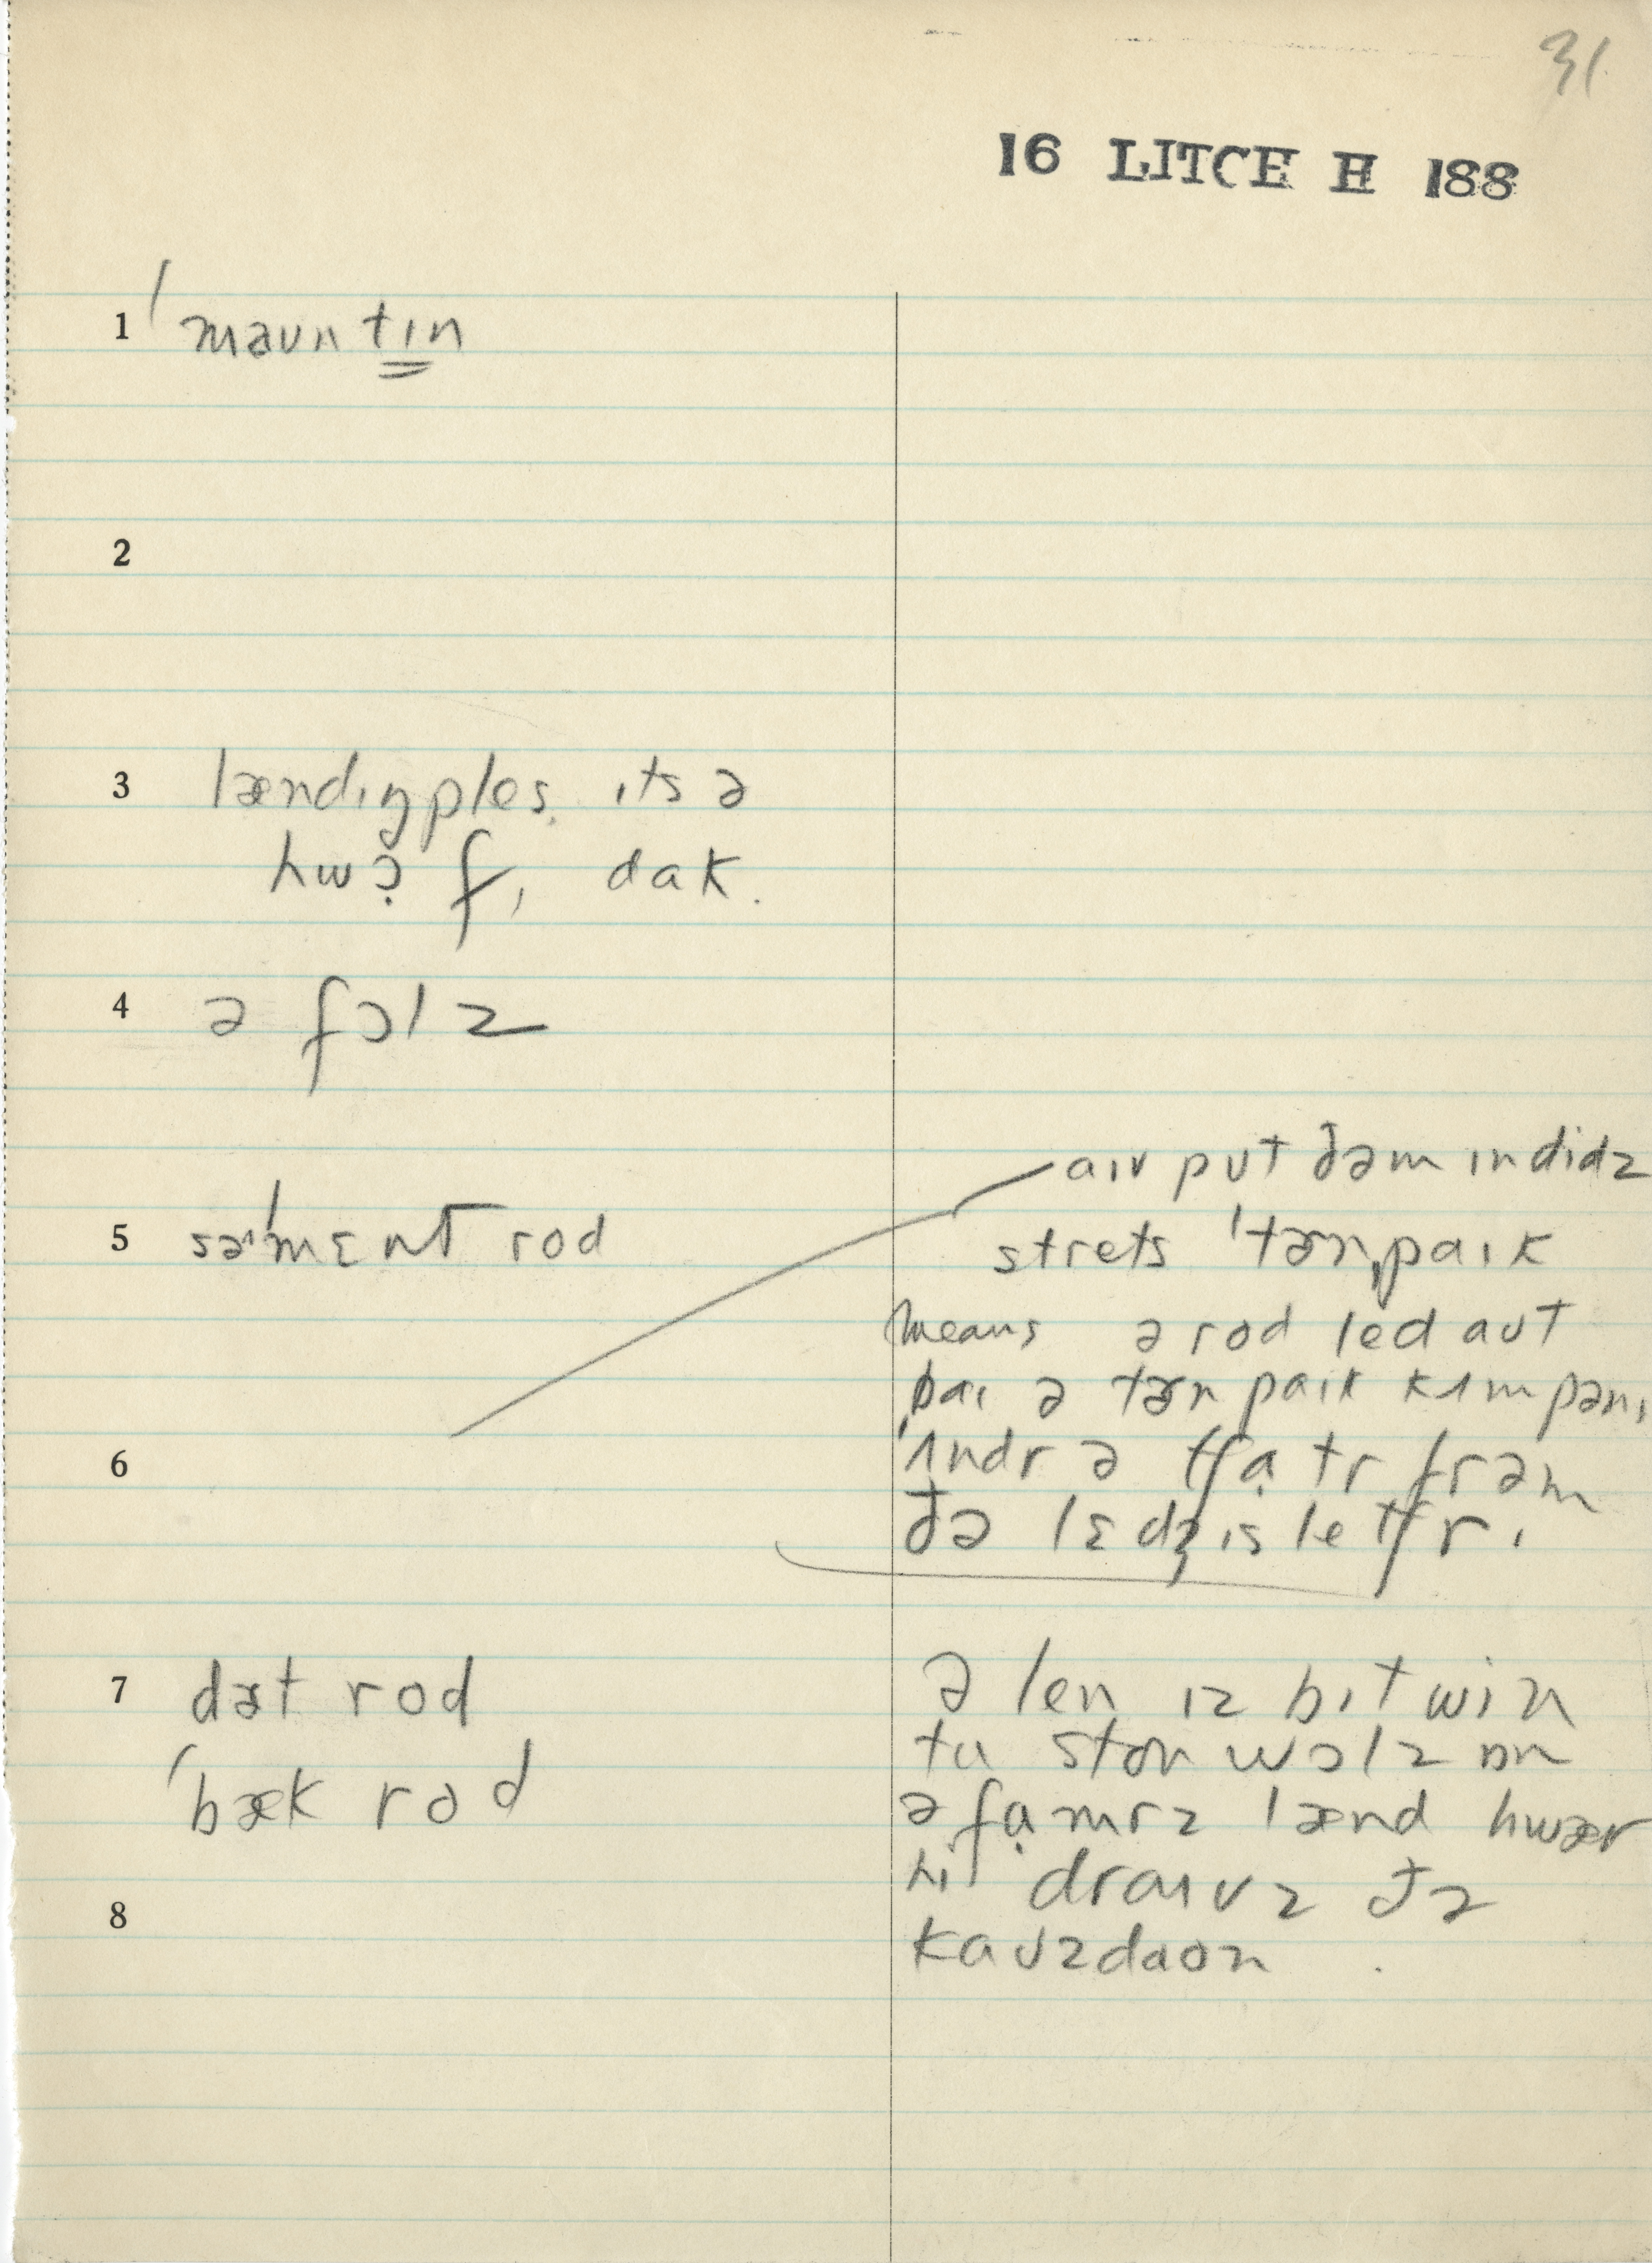 31
16 LITCH H 188
1 ˈmaʊntɪn
2
3 lændɪŋples. ɪts ə
hwɔ̣rfɪ dak.
4 ə fɔlz
5 səˈmɛnt rod
aɪv pʊt ðəm ɪn didz
strets ˈtɚnˌpaɪk
means ə rod led aʊt
baɪ ə tɚnpaɪk kʌmpənɪ
6 ˈʌndr ə tʃạtr frəm
ðə lɛdʒɪsletʃrɪ
7 dɚt rod
ˈbæk rod
ə len ɪz bɪtwin
tu ston wɔlz ɒn
ə fạmrz lænd hwær
hi draɪvz ðə
8
kaʊz daʊn.